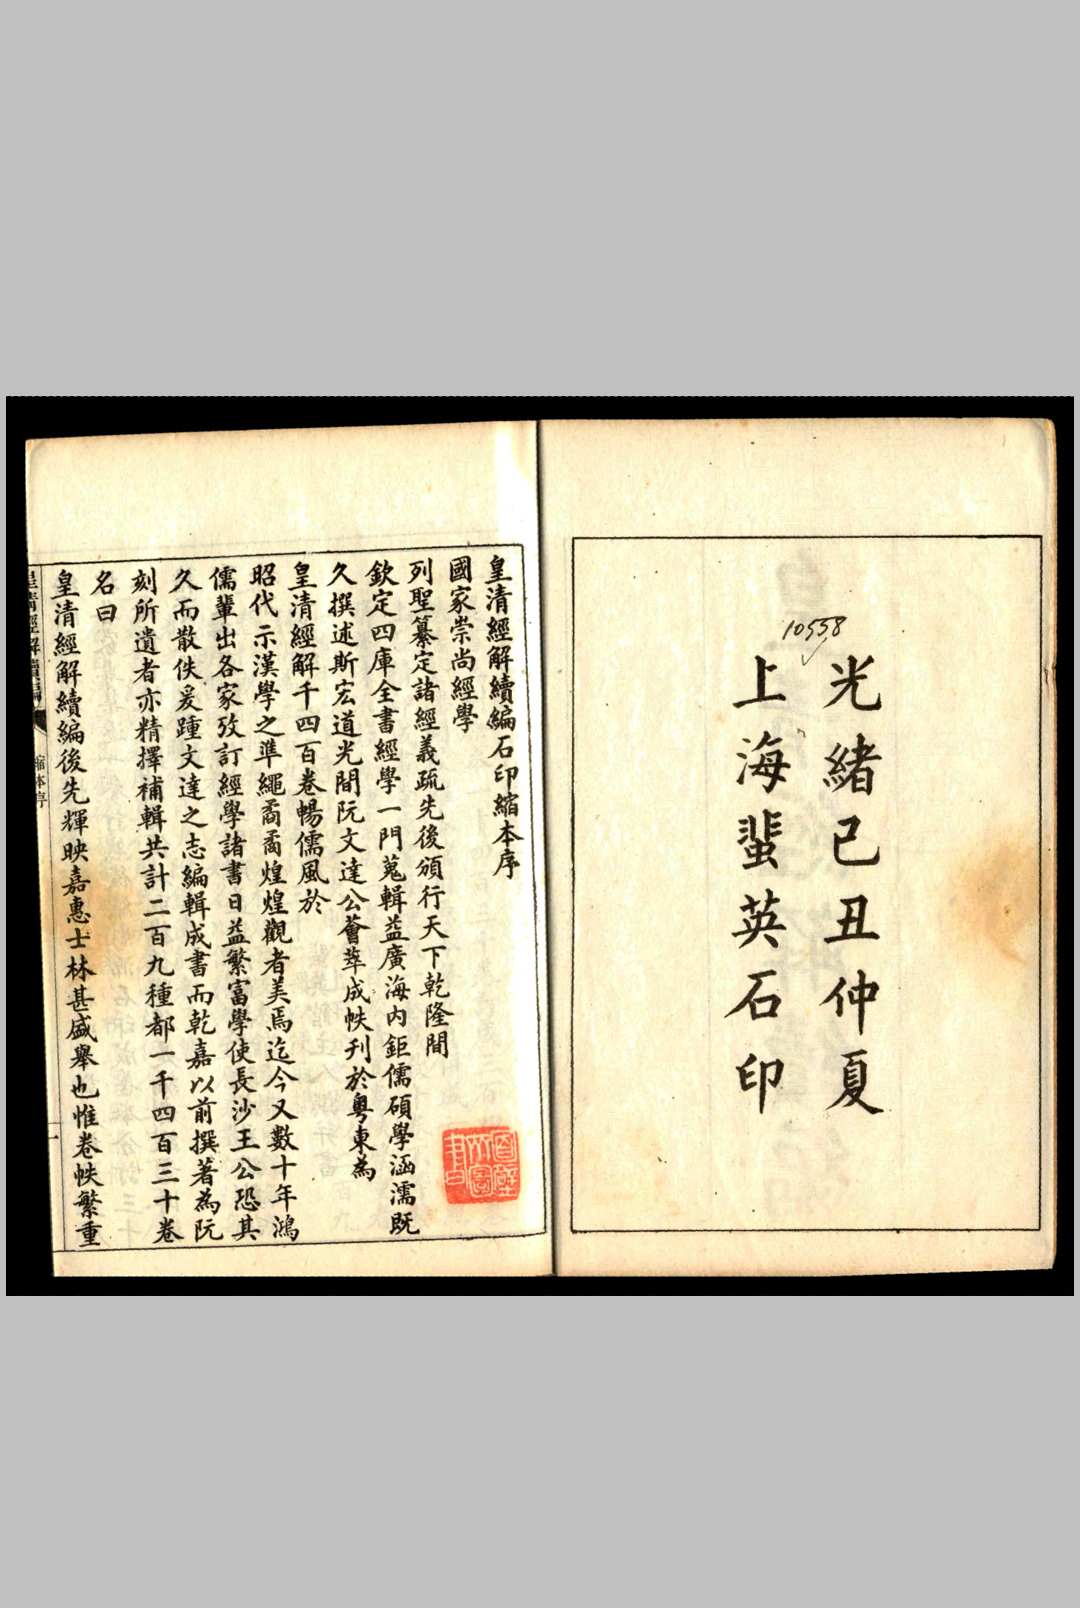 10558
光緒己丑仲夏
上海蜚英石印
皇清經解續編石印縮本序
國家崇尚經學
列聖纂定諸經義疏先後頒行天下乾隆間
欽定四庫全書經學一門蒐輯益廣海內鉅儒碩學涵濡既
久撰述斯宏道光間阮文達公薈萃成帙刊於粵東為
皇清經解千四百卷暢儒風於
昭代示漢學之準繩矞矞煌煌觀者美焉迄今又數十年鴻
儒輩出各家攷訂經學諸書日益繁富學使長沙王公恐其
久而散佚爰踵文達之志編輯成書而乾嘉以前撰著為阮
刻所遺者亦精擇補輯共計二百九種都一千四百三十卷
名曰
皇清經解續編後先輝映嘉惠士林甚盛舉也惟卷帙繁重
皇清經解續編
縮本序
一